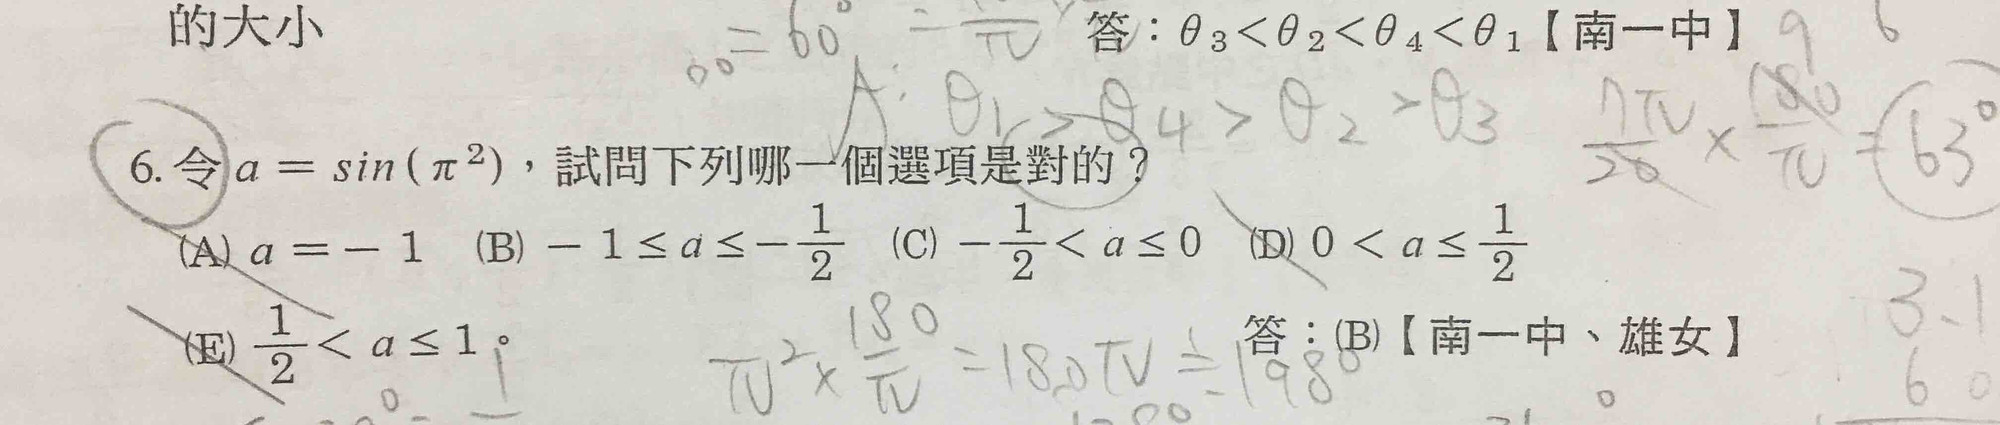 的大小
00=60°
答：θ₃<θ₂<θ₄<θ₁【南一中】
9 6
A: θ₁>θ₄>θ₂>θ₃
7π/20 × 180/π = 63°
6. 令 a = sin(π²)，試問下列哪一個選項是對的？
(A) a = − 1 (B) − 1 ≤ a ≤ − 1/2 (C) − 1/2 < a ≤ 0 (D) 0 < a ≤ 1/2
(E) 1/2 < a ≤ 1。
答：(B)【南一中、雄女】
π² × 180/π = 180π ≒ 198°
3.1
60